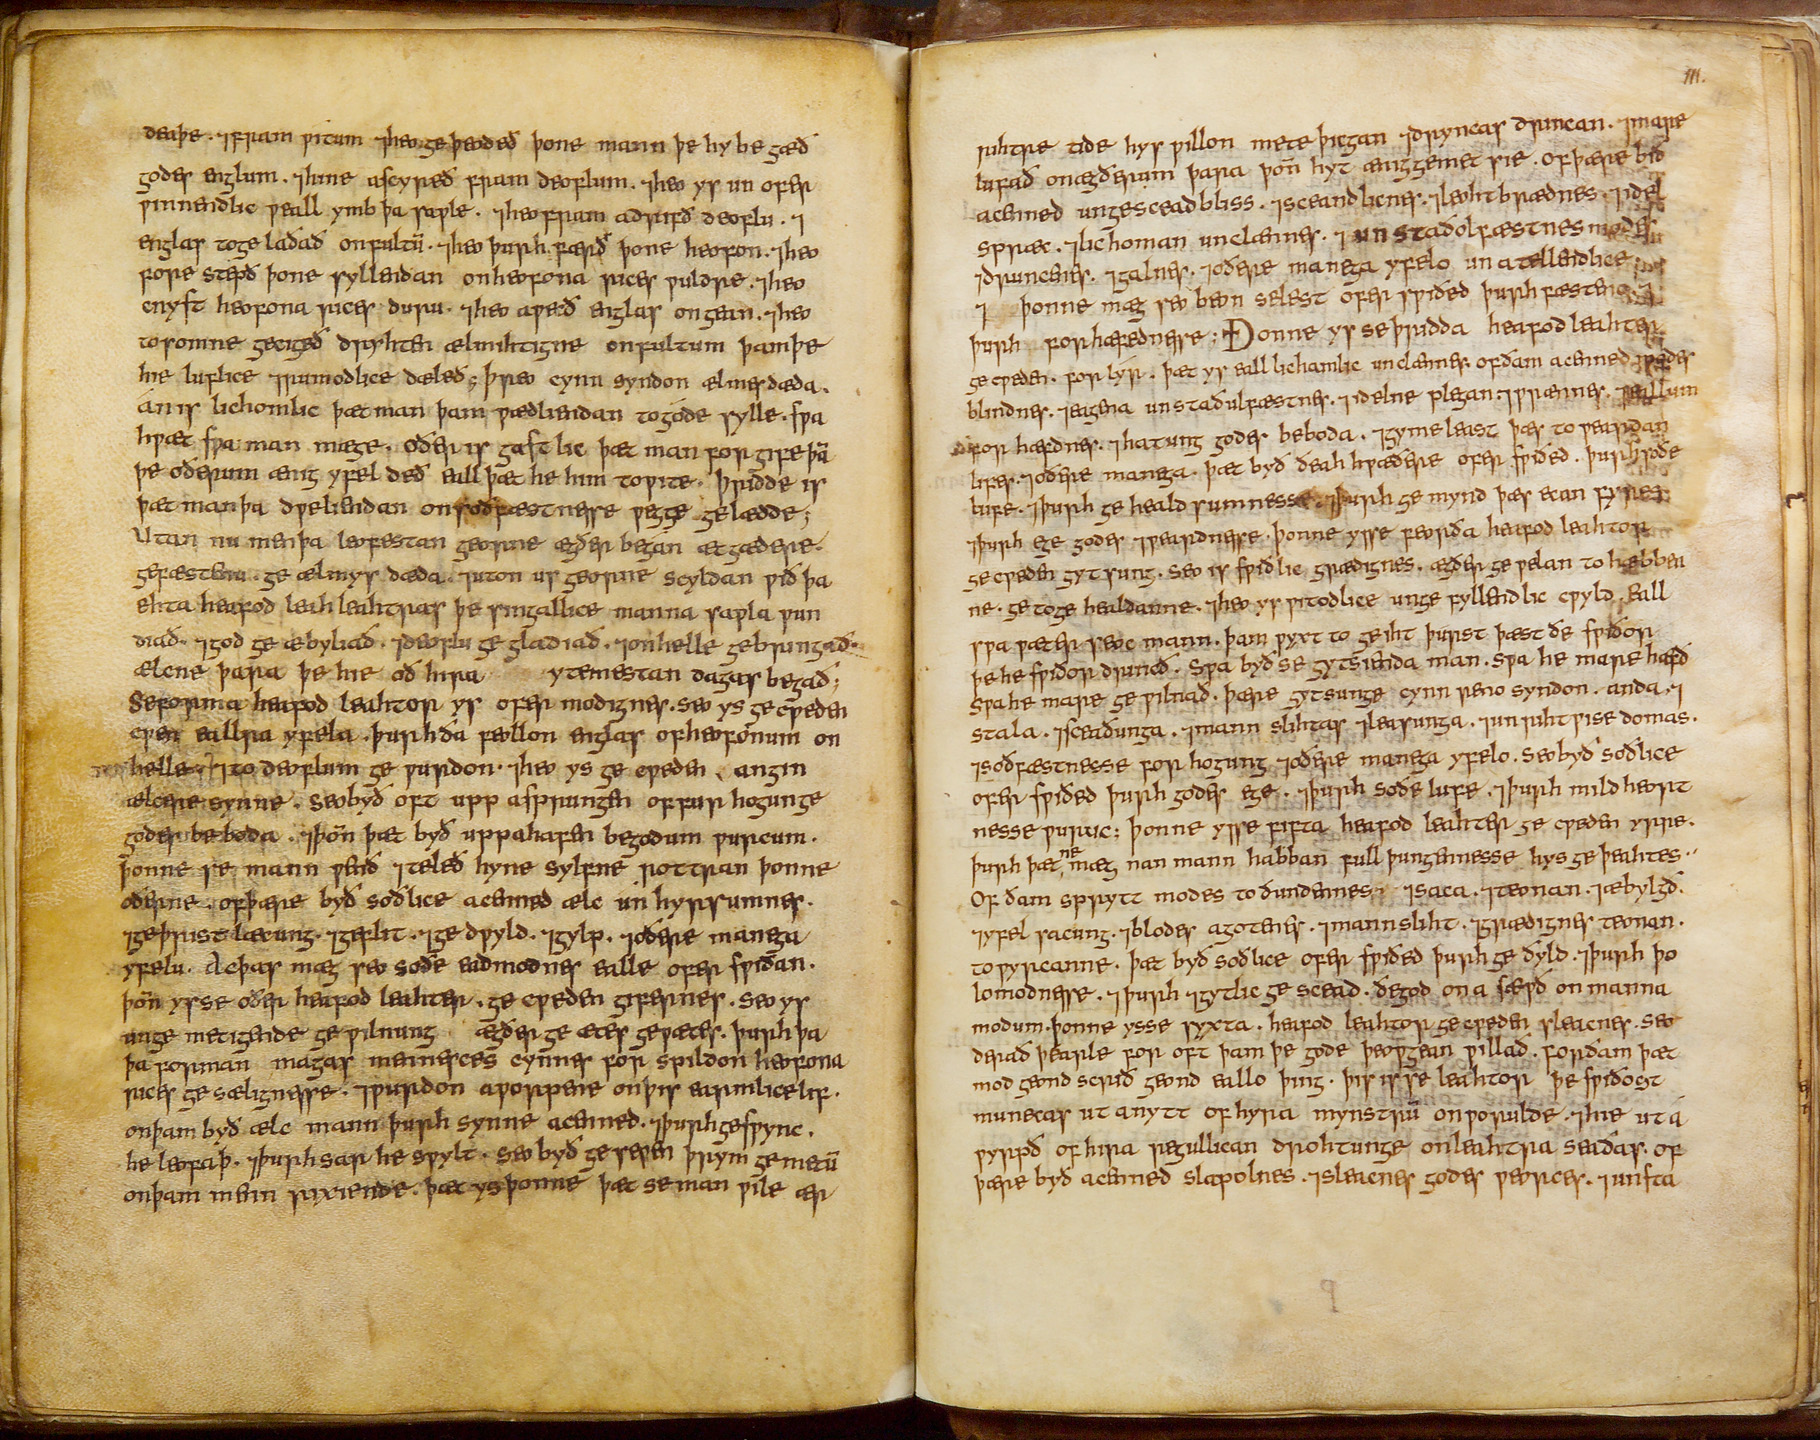 deaþe . ⁊ fram ƿitum ⁊ heo geþeodeð þone mann þe hy begæð
godes englum . ⁊ hine ascyreð fram deoflum . ⁊ heo ys un ofer
ƿinnendlic ƿeall ymb þa saƿle . ⁊ heo fram adrifð deoflū . ⁊
englas togelaðað on fultū . ⁊ heo þurh færð þone heofon . ⁊ heo
fore stæpð þone syllendan on heofona rices ƿuldre . ⁊ heo
cnyst heofona rices duru . ⁊ heo aƿecð englas ongean . ⁊ heo
tosomne gecigeð dryhten ælmihtigne on fultum þam þe
hie luflice ⁊ rumodlice dæleð ; þreo cynn syndon ælmesdæda .
án is lichomlic þæt man þam ƿædliendan togóde sylle . sƿa
hƿæt sƿa man mæge . oðer is gastlic þæt man forgife þā
þe oðerum ænig yfel deð eall þæt he him toƿite . þridde is
þæt man þa dƿeliendan on soðfæstnesse ƿegge gelædde ;
Utan nu men þa leofestan georne ægðer began ætgædere .
ge fæstenu . ge ælmysdæda . ⁊ uton us georne scyldan ƿið þa
ehta heafod leah leahtras þe singallice manna saƿla ƿun
diað . ⁊ god ge æbyliað . ⁊ deoflu ge gladiað . ⁊ on helle gebrungað
ælcne þara þe hie oð hira ytemestan dagas begað ;
Se forma heafod leahtor ys ofer modignes . seo ys ge cƿeden
cƿen ealra yfela . þurh ða feollon englas of heofonum on
helle ⁊ to deoflum ge ƿurdon . ⁊ heo ys ge cƿeden angin
ælcere synne . seo byð oft upp asprungen of forhogunge
godes beboda . ⁊ þōn þæt byð uppahafen be godum ƿurcum .
þonne se mann ƿenð ⁊ teleð hyne sylfne sottran þonne
oðerne . of þære byð soðlice acenned ælc un hyrsumnes .
⁊ geþristlæcung . ⁊ geflit . ⁊ ge dƿyld . ⁊ gylp . ⁊ oðere manega
yfelu . Ac þas mæg seo soðe eadmodnes ealle ofer sƿiðan .
þōn ys se oðer heafod leahter . ge cƿeden gifernes . seo ys
unge metigende ge ƿilnung ægðer ge ætes ge ƿætes . þurh þa
þa forman magas mennesces cynnes for spildon heofona
rices ge sælignesse . ⁊ ƿurdon aƿorpene on þis earmlice lif .
on þam byð ælc mann þurh synne acenned . ⁊ þurh gesƿync .
he leofaþ . ⁊ þurh sar he sƿylt . seo byð ge seƿen þrym gemetū
on þam menn rixiende . þæt ys þonne þæt se man ƿile ær
111.
rihtre tide hys ƿillon mete þicgan ⁊ dryncas drincan . ⁊ mare
lufað on ægðerum þara þōn hyt ænig gemet sie . of þære bið
acenned ungescead bliss . ⁊ sceandlicnes . ⁊ leohtbrædnes . ⁊ idel
spræc . ⁊ lichoman unclænnes . ⁊ unstaðolfæstnes modes
⁊ druncenes . ⁊ galnes . ⁊ oðere manega yfelo un atellendlice
⁊ þonne mæg seo beon selest ofer sƿiðed þurh fæstenu . ⁊
þurh forhæfednesse : Ðonne ys se þridda heafod leahter
ge cƿeden . forlyr . þæt ys eall lichamlic unclænnes of ðam acenned modes
blindnes . ⁊ eagena unstaðulfæstnes . ⁊ idelne plegan . ⁊ ƿrænnes . ⁊ eallum
for hæfdnes . ⁊ hatung godes beboda . ⁊ gymeleast þæs toƿeardan
lifes . ⁊ oðere manega . þæt byð ðeah hƿæðere ofer sƿiðed . þurh soðe
lufe . ⁊ þurh ge heald sumnesse . ⁊ þurh ge mynd þæs ecan fyres
⁊ þurh ege godes ⁊ ƿeardnesse . þonne ys se feorða heafod leahtor
ge cƿeden gytsung . seo is sƿiðlic grædignes . ægðer ge ƿelan to hæbben
ne . ge toge healdanne . ⁊ heo ys ƿitodlice unge fyllendlic cƿyld . Eall
sƿa ƿæter seoc mann . þam ƿyxt to geiht þurst þæs ðe sƿiðor
þe he sƿiðor drincð . Sƿa byð se gytsienda man . sƿa he mare hæfð
Sƿa he mare ge ƿilnað . þære gytsunge cynn reno syndon . anda . ⁊
stala . ⁊ sceaðunga . ⁊ mann slihtas ⁊ leasunga . ⁊ unriht ƿise domas .
⁊ soðfæstnesse forhogung ⁊ oðere manega yfelo . Seo byð soðlice
ofer sƿiðed þurh godes ege . ⁊ þurh soðe lufe . ⁊ þurh mildheort
nesse ƿurac : þonne ys se fifta heafod leahter ge cƿeden yrre .
þurh þæt ne mæg nan mann habban full þungennesse hys ge þeahtes .
Of ðam sprytt modes toðundennes ⁊ saca . ⁊ teonan . ⁊ æbylgð .
⁊ yfel sacung . ⁊ blodes agotenes . ⁊ mannsliht . ⁊ grædignes teonan .
toƿyrcanne . þæt byð soðlice ofer sƿiðed þurh ge ðyld . ⁊ þurh þo
lomodnesse . ⁊ þurh ⁊ gytlic ge scead . ðe god on asærð on manna
modum . þonne ys se syxta . heafod leahtor gecƿeden slæcnes . seo
derað þearle for oft þam þe gode þeoƿgean ƿillað . for ðam þæt
mod geond scrið geond eallo þing . þis is se leahtor þe sƿiðost
munecas ut anytt of hyra mynstrū on ƿorulde . ⁊ hie ut á
ƿyrpð of hira regullican drohtunge on leahtra seaðas . of
þære byð acenned slapolnes . ⁊ sleacnes godes ƿeorces . ⁊ unsta